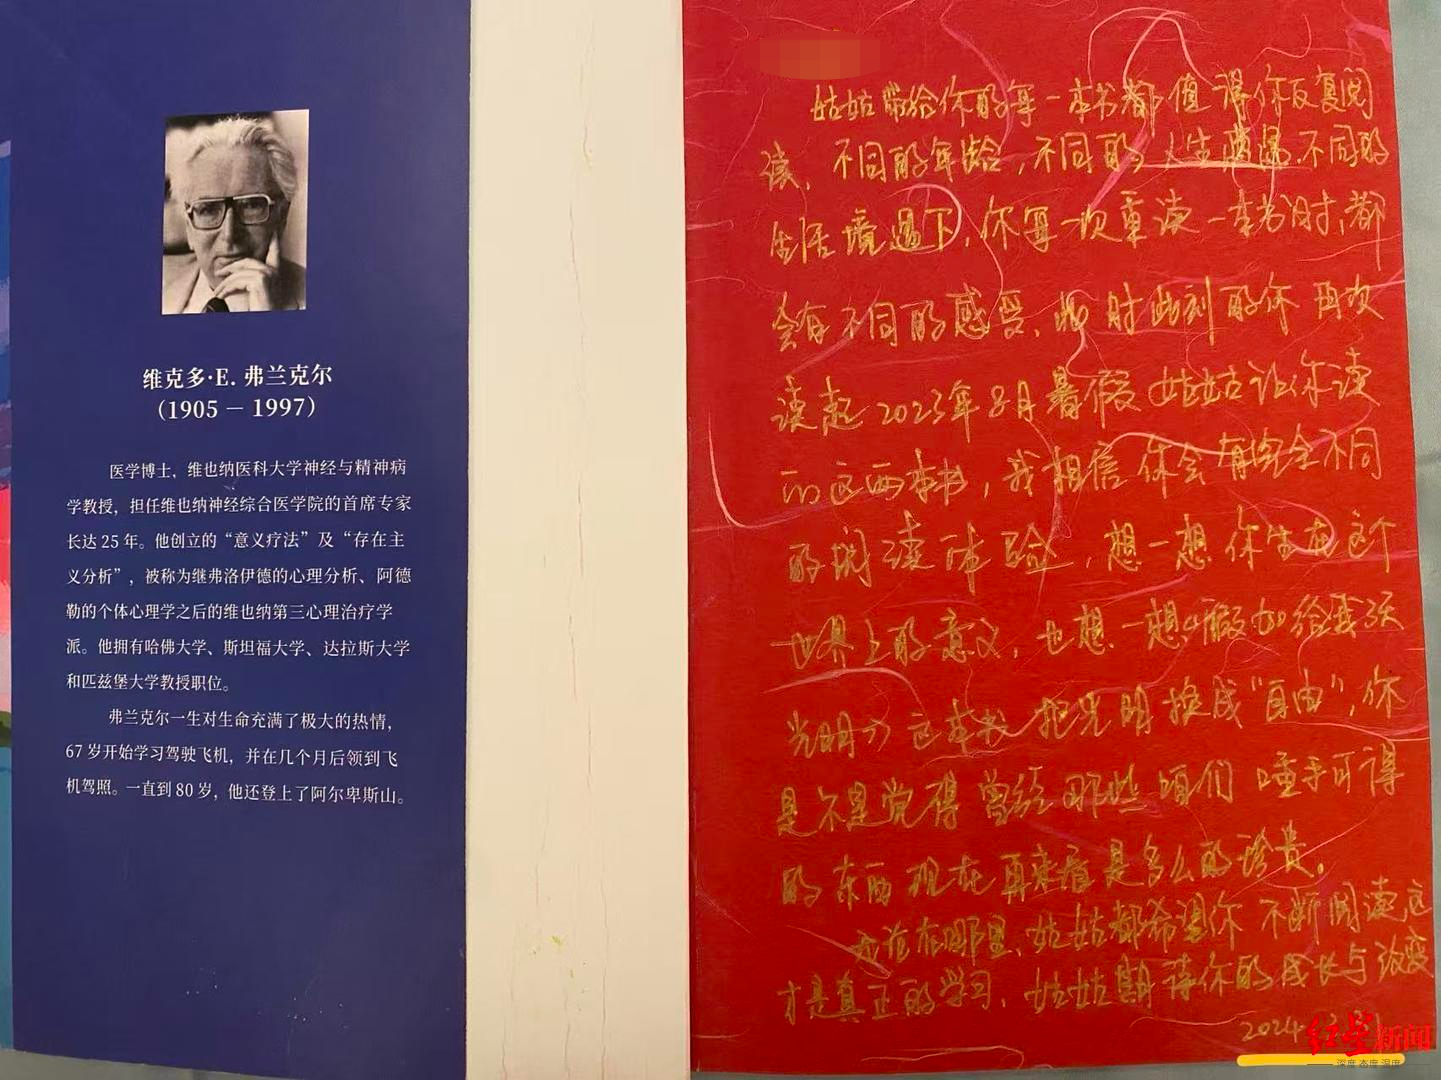 维克多·E. 弗兰克尔
（1905 — 1997）
医学博士，维也纳医科大学神经与精神病
学教授，担任维也纳神经综合医学院的首席专家
长达 25 年。他创立的“意义疗法”及“存在主
义分析”，被称为继弗洛伊德的心理分析、阿德
勒的个体心理学之后的维也纳第三心理治疗学
派。他拥有哈佛大学、斯坦福大学、达拉斯大学
和匹兹堡大学教授职位。
弗兰克尔一生对生命充满了极大的热情，
67 岁开始学习驾驶飞机，并在几个月后领到飞
机驾照。一直到 80 岁，他还登上了阿尔卑斯山。
姑姑带给你的每一本书都值得你反复阅
读，不同的年龄，不同的人生阅历，不同的
生活境遇下，你每一次重读一本书时，都
会有不同的感受，此时此刻的你再次
读起2023年8月暑假姑姑让你读
的这两本书，我相信你会有完全不同
的阅读体验，想一想你生在这个
世界上的意义，也想一想《假如给我3天
光明》这本书把光明换成“自由”，你
是不是觉得曾经那些咱们唾手可得
的东西现在再来看是多么的珍贵。
无论在哪里，姑姑都希望你不断阅读这
才是真正的学习，姑姑期待你的成长与改变
2024
红星新闻
深度 态度 温度